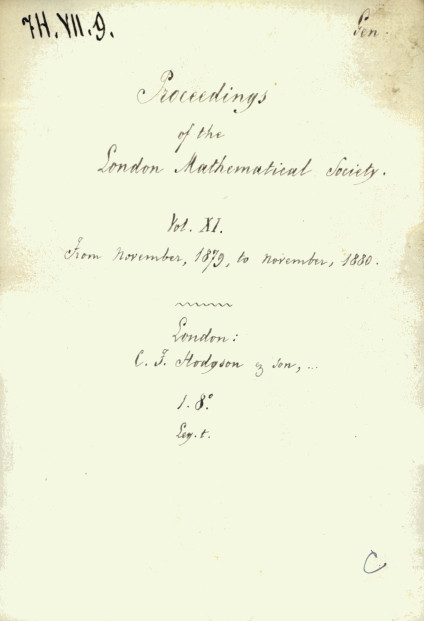 7H.VII.9.
Gen.
Proceedings
of the
London Mathematical Society.
Vol. XI.
From November, 1879, to November, 1880.
London:
C. F. Hodgson & Son, ...
1. 8°.
Leg. t.
C